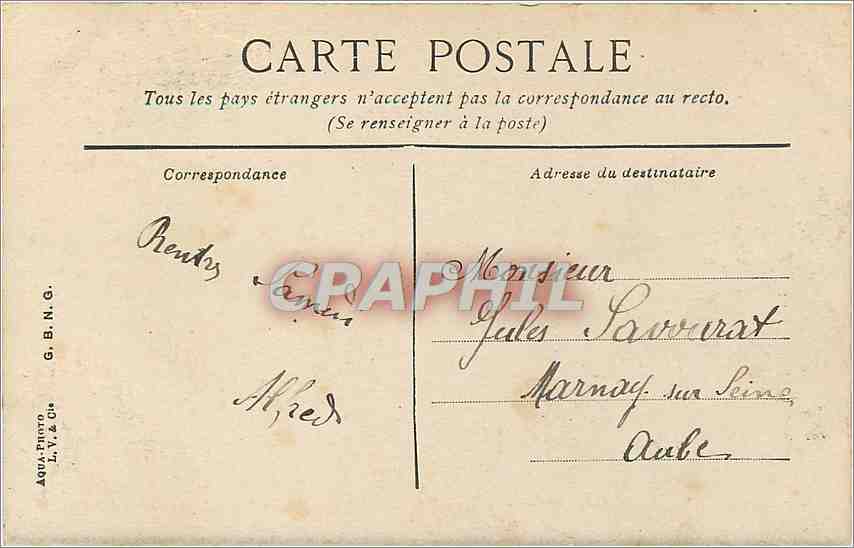 CARTE POSTALE
Tous les pays étrangers n'acceptent pas la correspondance au recto.
(Se renseigner à la poste)
Correspondance
Adresse du destinataire
Samedi
Alfred
CPAPHIL
Monsieur
Jules Savourat
Marnay sur Seine
Aube
G. B. N. G.
AQUA-PHOTO
L. V. & Cie